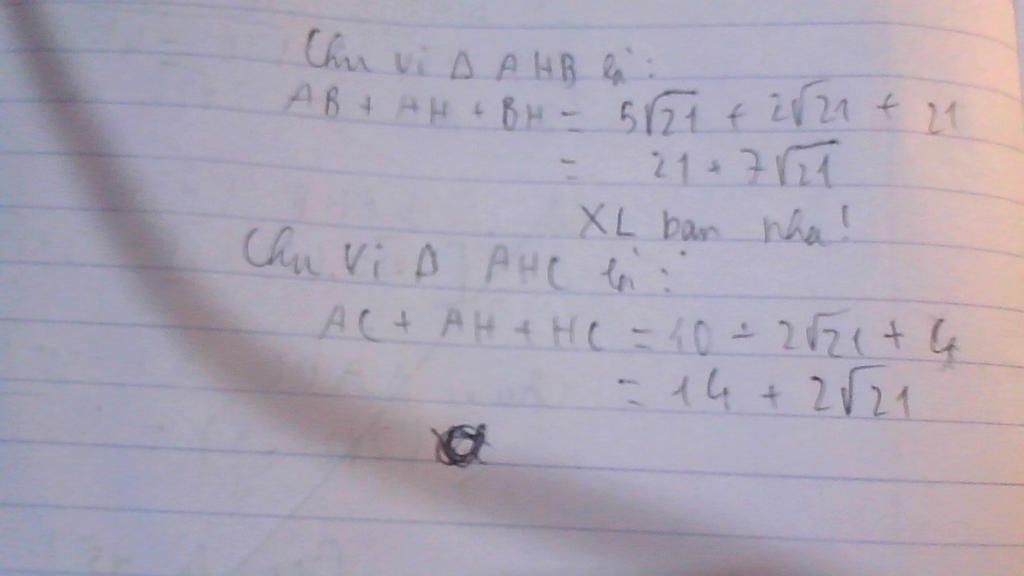 Chu vi Δ AHB là:
AB + AH + BH = 5√21 + 2√21 + 21
= 21 + 7√21
XL bạn nha!
Chu vi Δ AHC là:
AC + AH + HC = 10 + 2√21 + 4
= 14 + 2√21